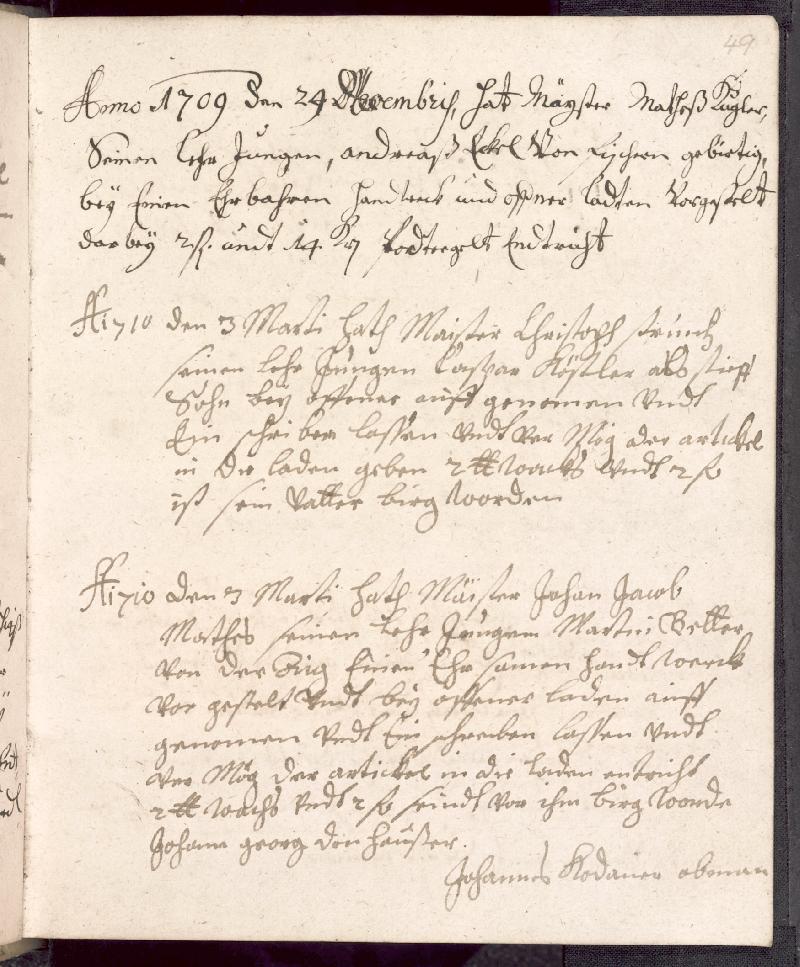 49
Anno 1709 den 24 Novembris, hat Mäyster Matheß Kugler,
Seinen lehr Jungen, andreaß Eckel Von Fischern gebirtig,
bey Einen Ehrbahren handtwerck und offner ladten Vorgestelt
dar bey 2 fl. undt 14 Kr Endtricht
A 1710 den 3 Marti hath Maister Christoph
seinen lehr Jungen Caspar Köstler alß stieff
Sohn bey offener auff genomen Vndt
Ein schreiben lassen Vndt Ver Mög der artickel
in die laden geben 2 ℔ Wachs Vndt 2 fl
ist sein Vatter birg Worden
A 1710 den 3 Marti hath Mäister Johan Jacob
Mathes seinen lehr Jungen Martin Better
Von der Einen Ehr samen handt Werck
Vor gestelt Vndt bey offener laden auff
genomen Vndt Ein schreiben lassen Vndt
Ver Mög der artickel in die laden entricht
2 ℔ Wachs Vndt 2 fl seindt Vor ihm birg Worde
Johann georg
Johannes Kodauer obman